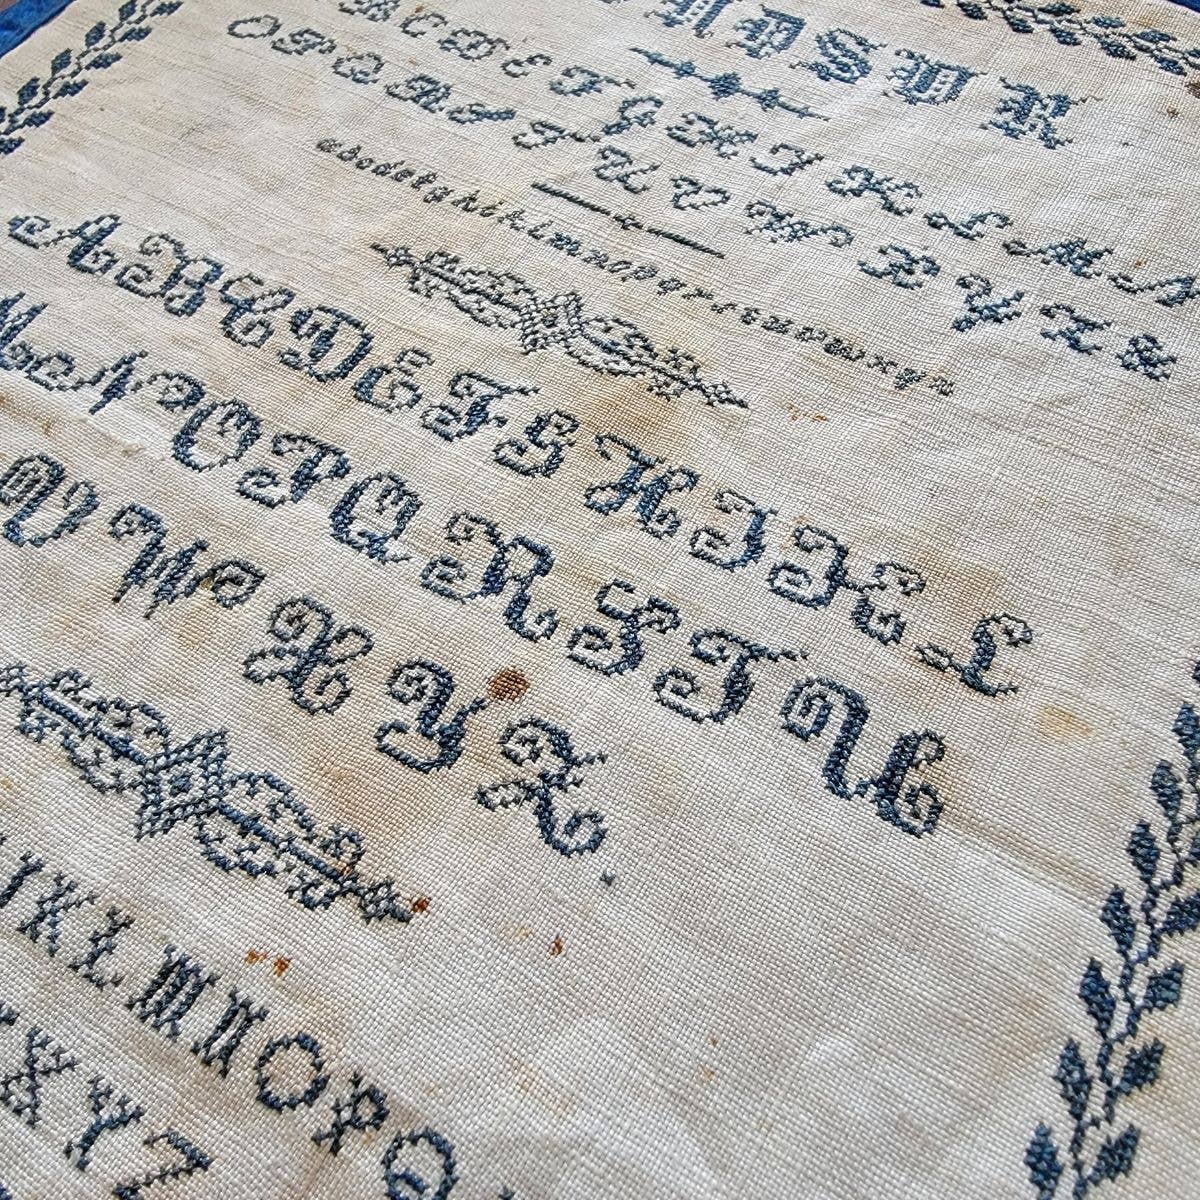 B C D E F G H I K L M N
O P Q R S T U V W X Y Z &
abcdefghiklmnopqrstuvwxyz
A B C D E F G H I K L
M N O P Q R S T U
V W X Y Z.
K L M N O P Q
X Y Z